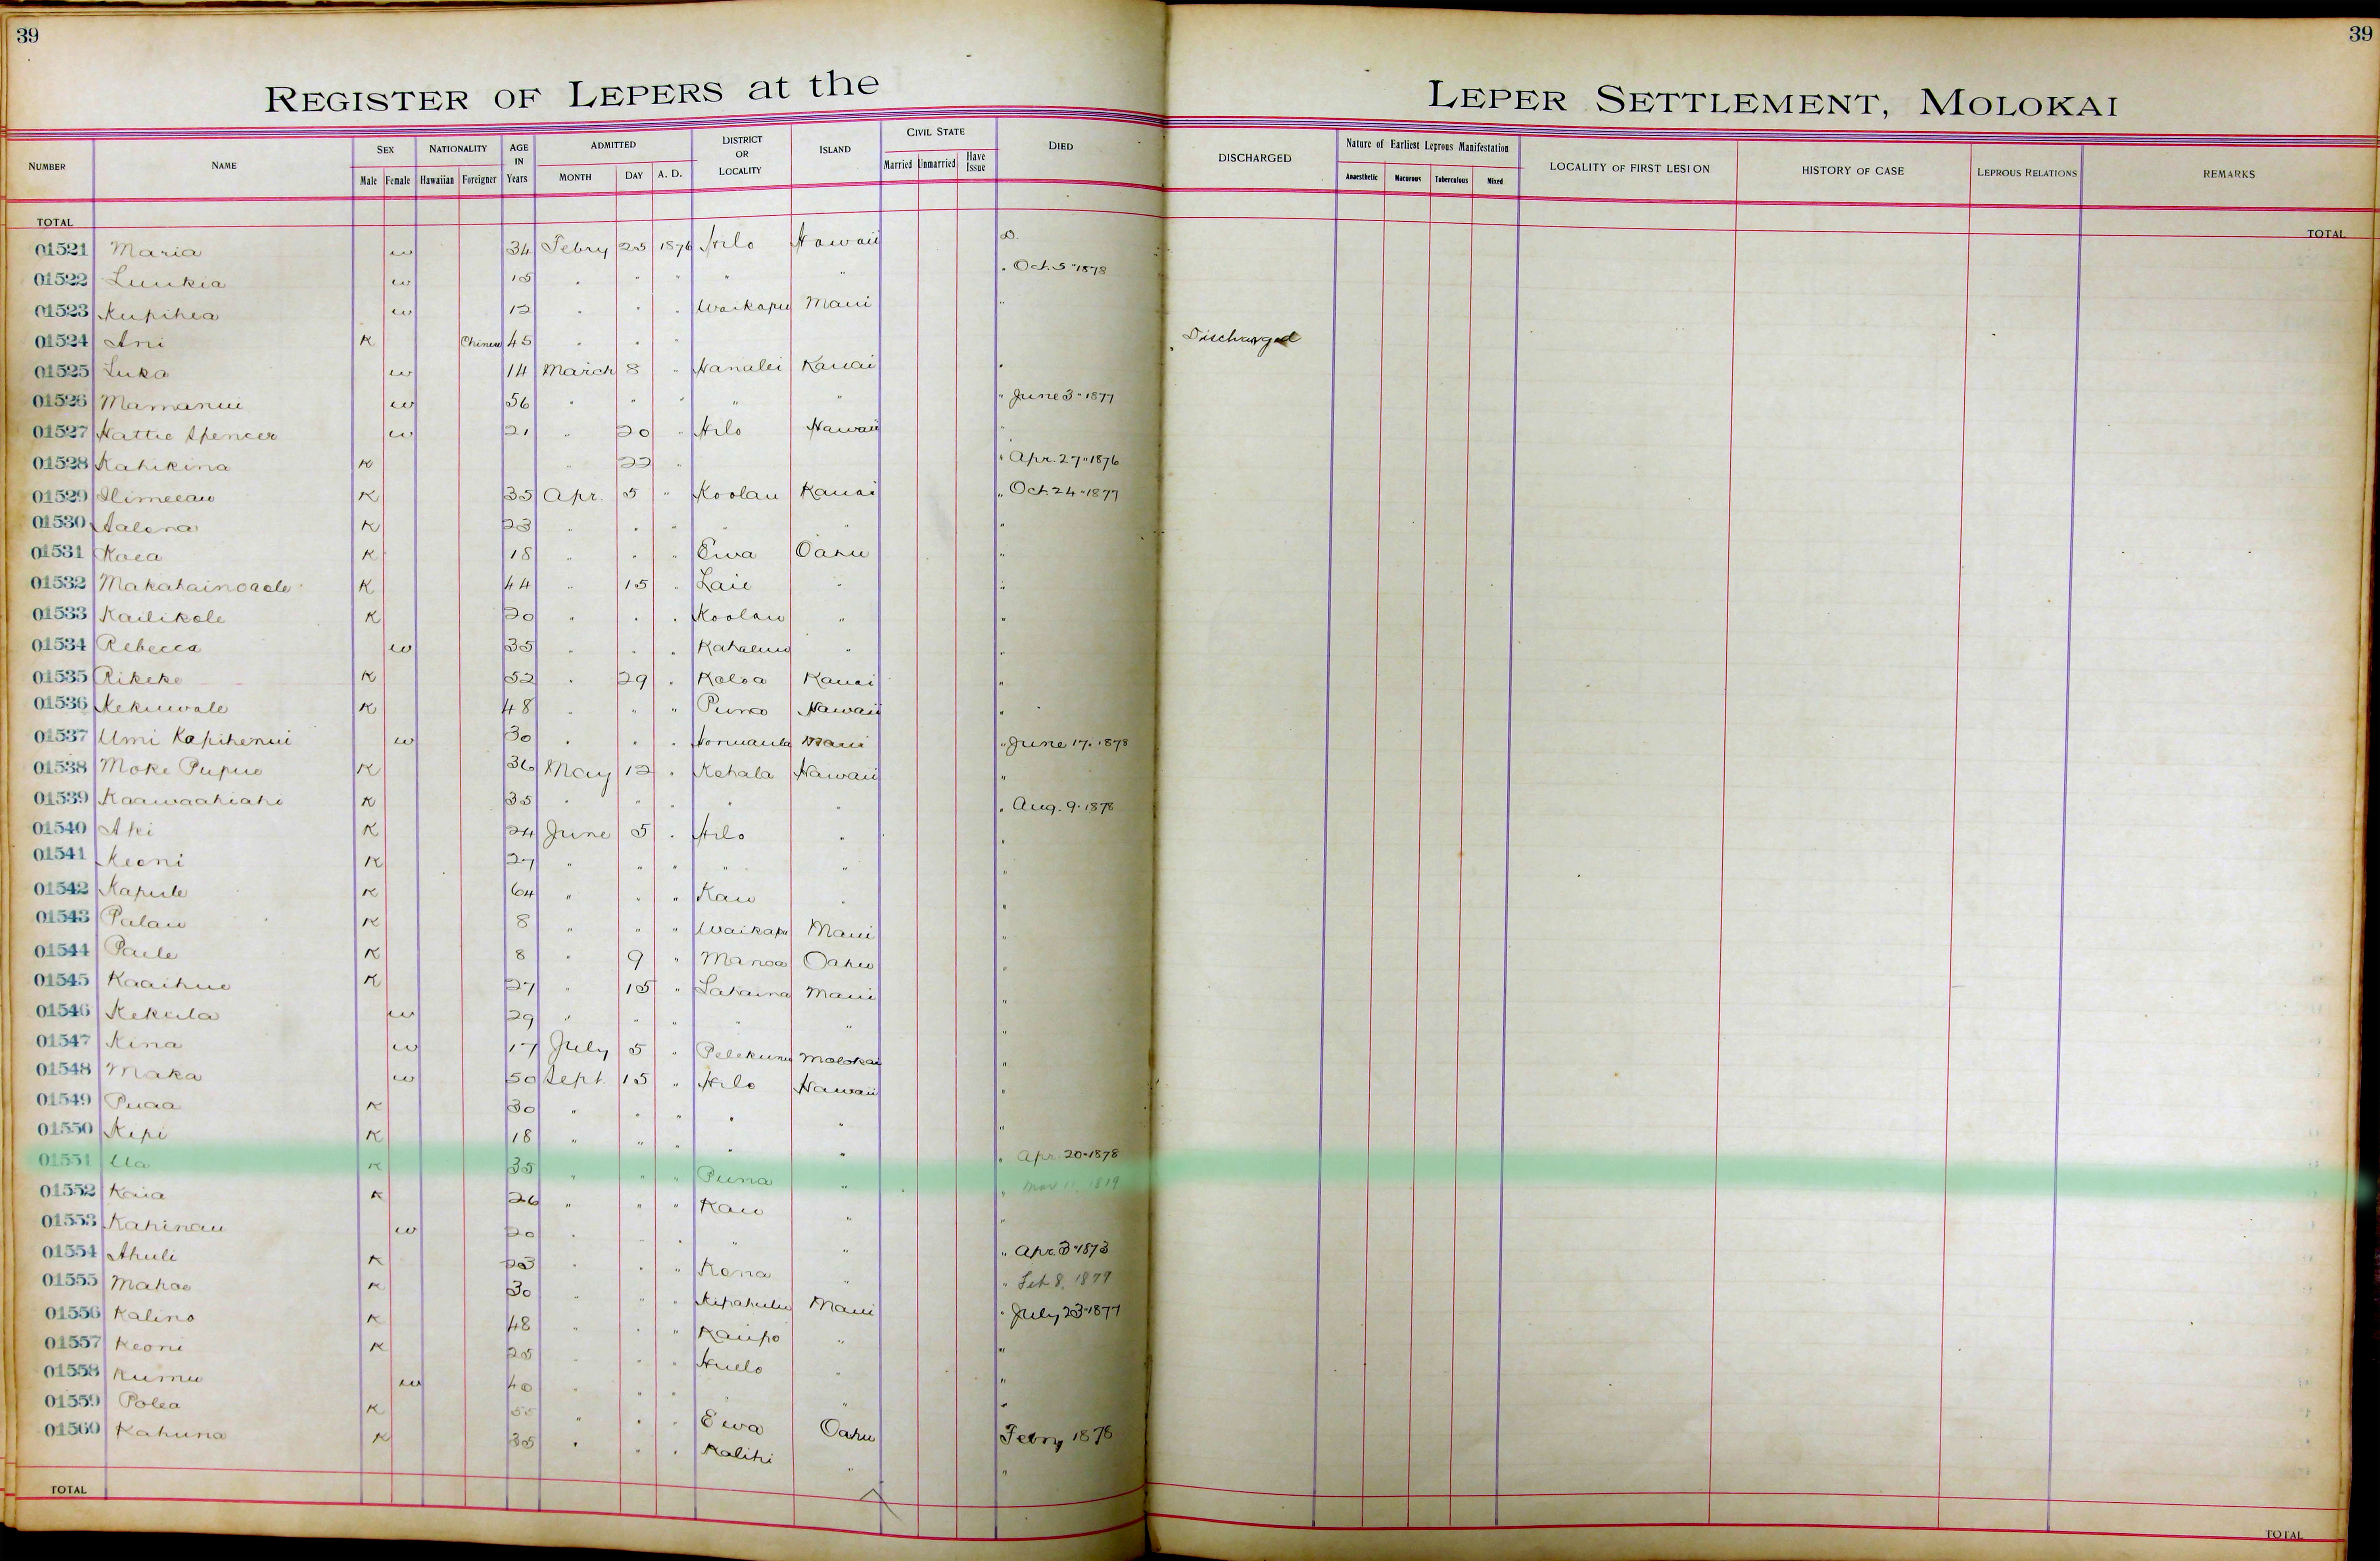 39 39
REGISTER OF LEPERS at the LEPER SETTLEMENT, MOLOKAI
NUMBER NAME SEX Male Female NATIONALITY Hawaiian Foreigner AGE IN Years ADMITTED MONTH DAY A. D. DISTRICT OR LOCALITY ISLAND CIVIL STATE Married Unmarried Have Issue DIED DISCHARGED Nature of Earliest Leprous Manifestation Anaesthetic Macurous Tuberculous Mixed LOCALITY OF FIRST LESION HISTORY OF CASE LEPROUS RELATIONS REMARKS
TOTAL TOTAL
01521 Maria w 34 Febry 25 1876 Hilo Hawaii D.
01522 Luukia w 15 " " " " " " Oct. 5 " 1878
01523 Kupihea w 12 " " " Waikapu Maui "
01524 Ani K Chinese 45 " " " Discharged
01525 Luka w 14 March 8 " Hanalei Kauai "
01526 Mamanui w 56 " " " " " " June 3 " 1877
01527 Hattie Spencer w 21 " 20 " Hilo Hawaii "
01528 Kahikina K " 22 " " Apr. 27 " 1876
01529 K 35 Apr. 5 " Koolau Kauai " Oct. 24 " 1877
01530 Aalona K 23 " " " " " "
01531 Koea K 18 " " " Ewa Oahu "
01532 Makahainoaole K 44 " 15 " Laie " "
01533 Kailikole K 20 " " " Koolau " "
01534 Rebecca w 35 " " " Kahaluu " "
01535 Rikeke K 52 " 29 " Koloa Kauai "
01536 Kekuwale K 48 " " " Puna Hawaii "
01537 Umi Kapihenui w 30 " " " Honuaula Maui " June 17. 1878
01538 Moke Pupuo K 36 May 12 " Kohala Hawaii "
01539 Kaawaahiahi K 35 " " " " " " Aug. 9. 1878
01540 Ahi K 24 June 5 " Hilo " "
01541 Keoni K 27 " " " " " "
01542 Kapule K 64 " " " Kau " "
01543 Palau K 8 " " " Waikapu Maui "
01544 Paele K 8 " 9 " Manoa Oahu "
01545 Kaaihue K 27 " 15 " Lahaina Maui "
01546 Kekula w 29 " " " " " "
01547 Kina w 17 July 5 " Pelekunu Molokai "
01548 Maka w 50 Sept. 15 " Hilo Hawaii "
01549 Puaa K 30 " " " " " "
01550 Kipi K 18 " " " " " " Apr. 20 " 1878
01551 Ua K 35 " " " Puna " " Mar 11, 1879
01552 Kaia K 26 " " " Kau " "
01553 Kahinau w 20 " " " " " " Apr. 3 " 1873
01554 Ahuli K 23 " " " Kona " " Feb 8, 1879
01555 Mahoe K 30 " " " Kipahulu Maui " July 23 " 1877
01556 Kalino K 48 " " " Kaupo " "
01557 Keoni K 25 " " " Huelo " "
01558 Kumu w 40 " " " " "
01559 Polea K 55 " " " Ewa Oahu Febry 1878
01560 Kahuna K 35 " " " Kalihi " "
TOTAL TOTAL